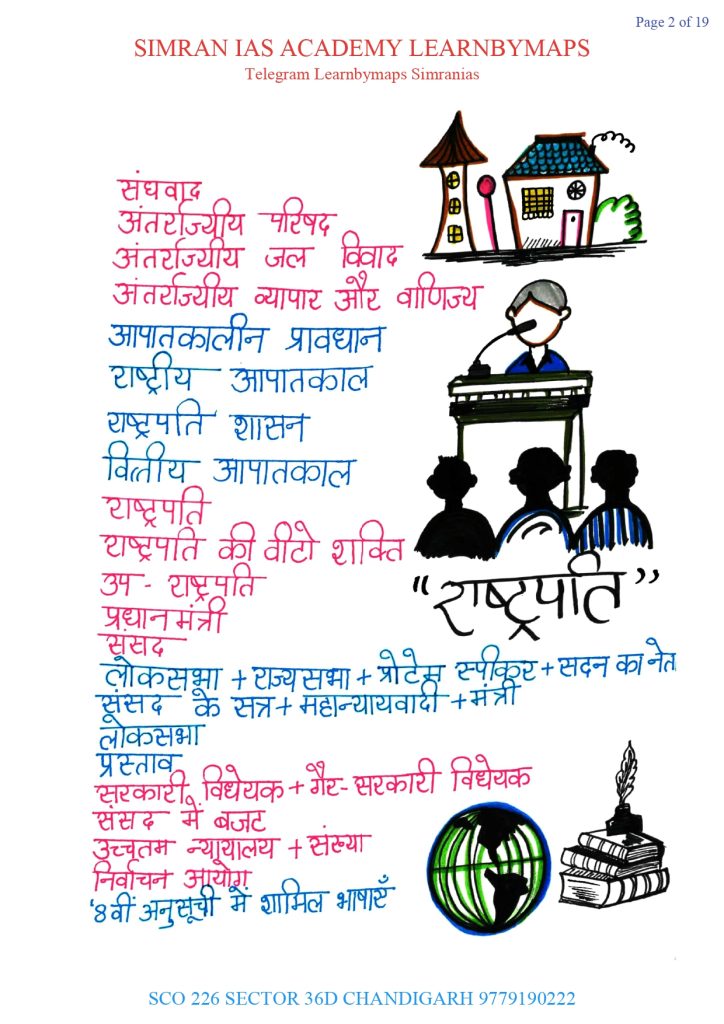 Page 2 of 19
SIMRAN IAS ACADEMY LEARNBYMAPS
Telegram Learnbymaps Simranias
संघवाद
अंतर्राज्यीय परिषद
अंतर्राज्यीय जल विवाद
अंतर्राज्यीय व्यापार और वाणिज्य
आपातकालीन प्रावधान
राष्ट्रीय आपातकाल
राष्ट्रपति शासन
वित्तीय आपातकाल
राष्ट्रपति
राष्ट्रपति की वीटो शक्ति
उप - राष्ट्रपति
"राष्ट्रपति"
प्रधानमंत्री
संसद
लोकसभा + राज्यसभा + प्रोटेम स्पीकर + सदन का नेत
संसद के सत्र + महान्यायवादी + मंत्री
लोकसभा
प्रस्ताव
सरकारी विधेयक + गैर- सरकारी विधेयक
संसद में बजट
उच्चतम न्यायालय + संख्या
निर्वाचन आयोग
'8वीं अनुसूची में शामिल भाषाएँ
SCO 226 SECTOR 36D CHANDIGARH 9779190222